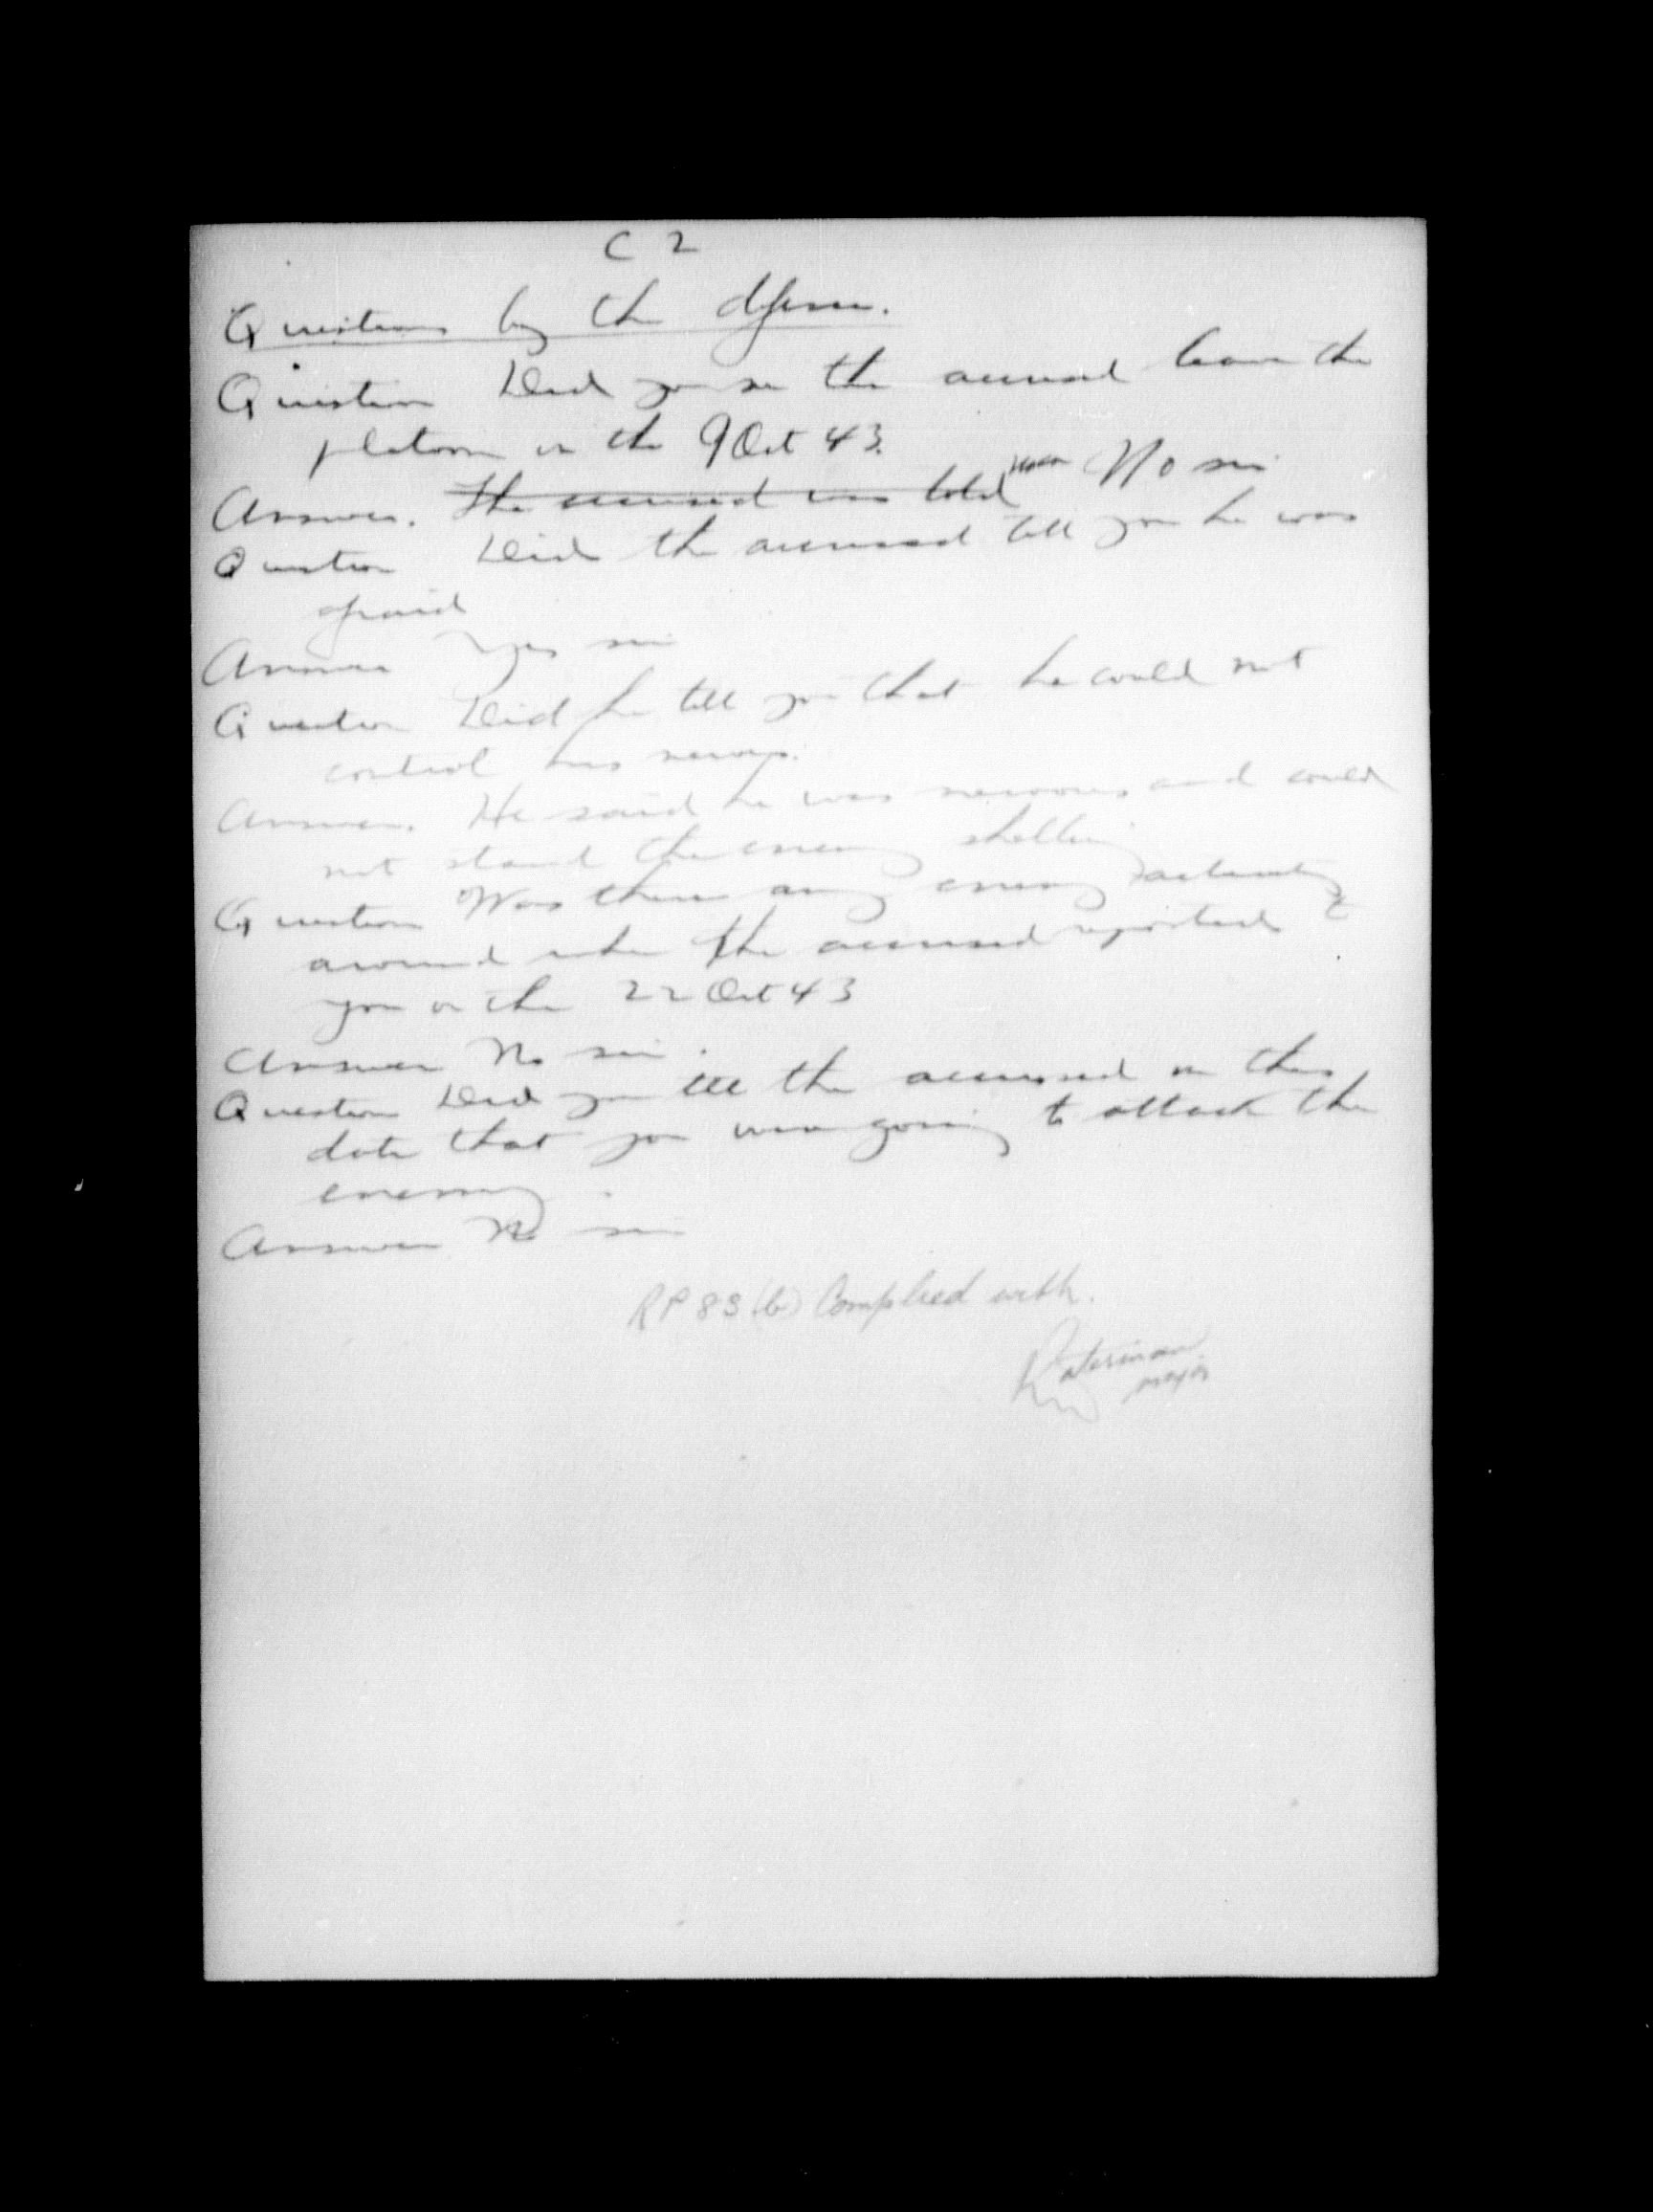 C 2
Questions by the defence.
Question Did you see the accused leave the
platoon on the 9 Oct 43.
Answer. The accused was told No sir
Question Did the accused tell you he was
afraid
Answer Yes sir
Question Did he tell you that he could not
control his nerves.
Answer. He said he was nervous and could
not stand the enemy shelling
Question Was there any enemy activity
around when the accused reported to
you on the 22 Oct 43
Answer No sir.
Question Did you tell the accused on this
date that you were going to attack the
enemy.
Answer No sir
RP 83 (b) Complied with.
major